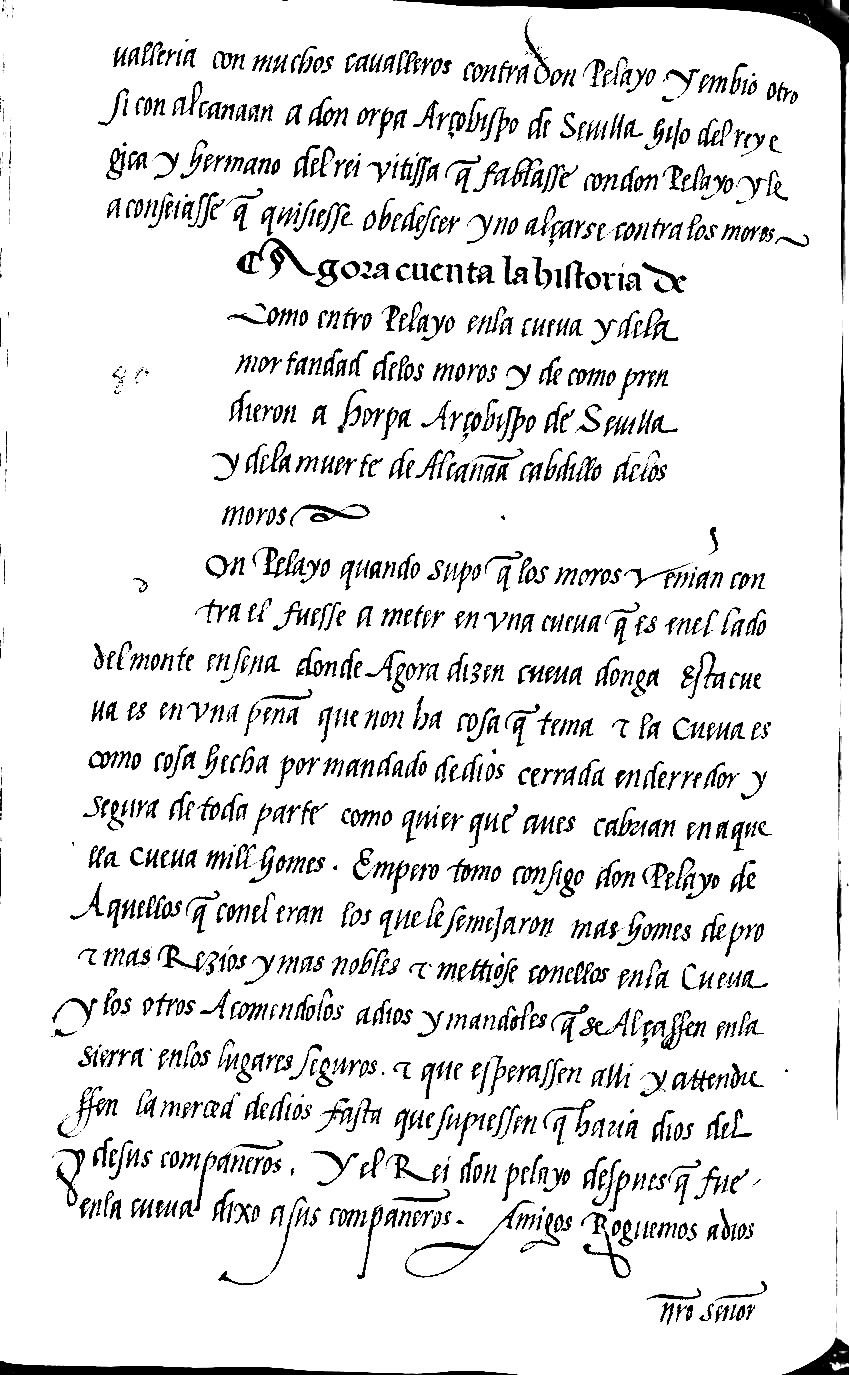 ualleria con muchos caualleros contra don Pelayo y embio otro
si con alcanaan a don orpa Arçobispo de Seuilla hijo del rey e
gica y hermano del rei vitissa q̃ fablasse con don Pelayo y le
aconseiasse q̃ quisiesse obedescer y no alçarse contra los moros
Agora cuenta la historia de
Como entro Pelayo enla cueua y dela
mortandad delos moros y de como pren
dieron a horpa Arçobispo de Seuilla
y dela muerte de Alcanãa cabdillo delos
moros
On Pelayo quando supo q̃ los moros venian con
d
tra el fuesse a meter en vna cueua q̃ es enel lado
del monte ensena donde Agora dizen cueua donga Esta cue
ua es en vna peña que non ha cosa q̃ tema τ la Cueua es
como cosa hecha por mandado de dios cerrada enderredor y
segura de toda parte como quier que aues cabrian en aque
lla Cueua mill homes. Empero tomo consigo don Pelayo de
Aquellos q̃ conel eran los que le semejaron mas homes de pro
τ mas Rezios y mas nobles τ mettiose conellos enla Cueua
y los otros Acomendolos a dios y mandoles q̃ se Alçassen enla
sierra enlos lugares seguros. τ que esperassen alli y attendie
ssen la merced de dios fasta que supiessen q̃ haria dios del
y de sus compañeros. Y el Rei don pelayo despues q̃ fue
enla cueua dixo a sus compañeros. Amigos Roguemos a dios
nr̃o señor